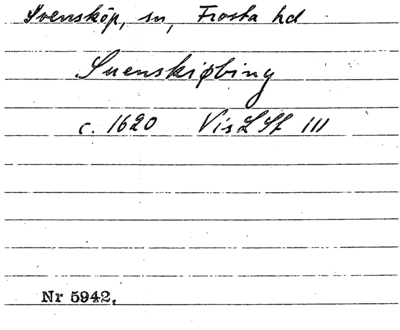 Svensköp, sn, Frosta hd
Suenskiøbing
c. 1620 Vis LSt III
Nr 5942.